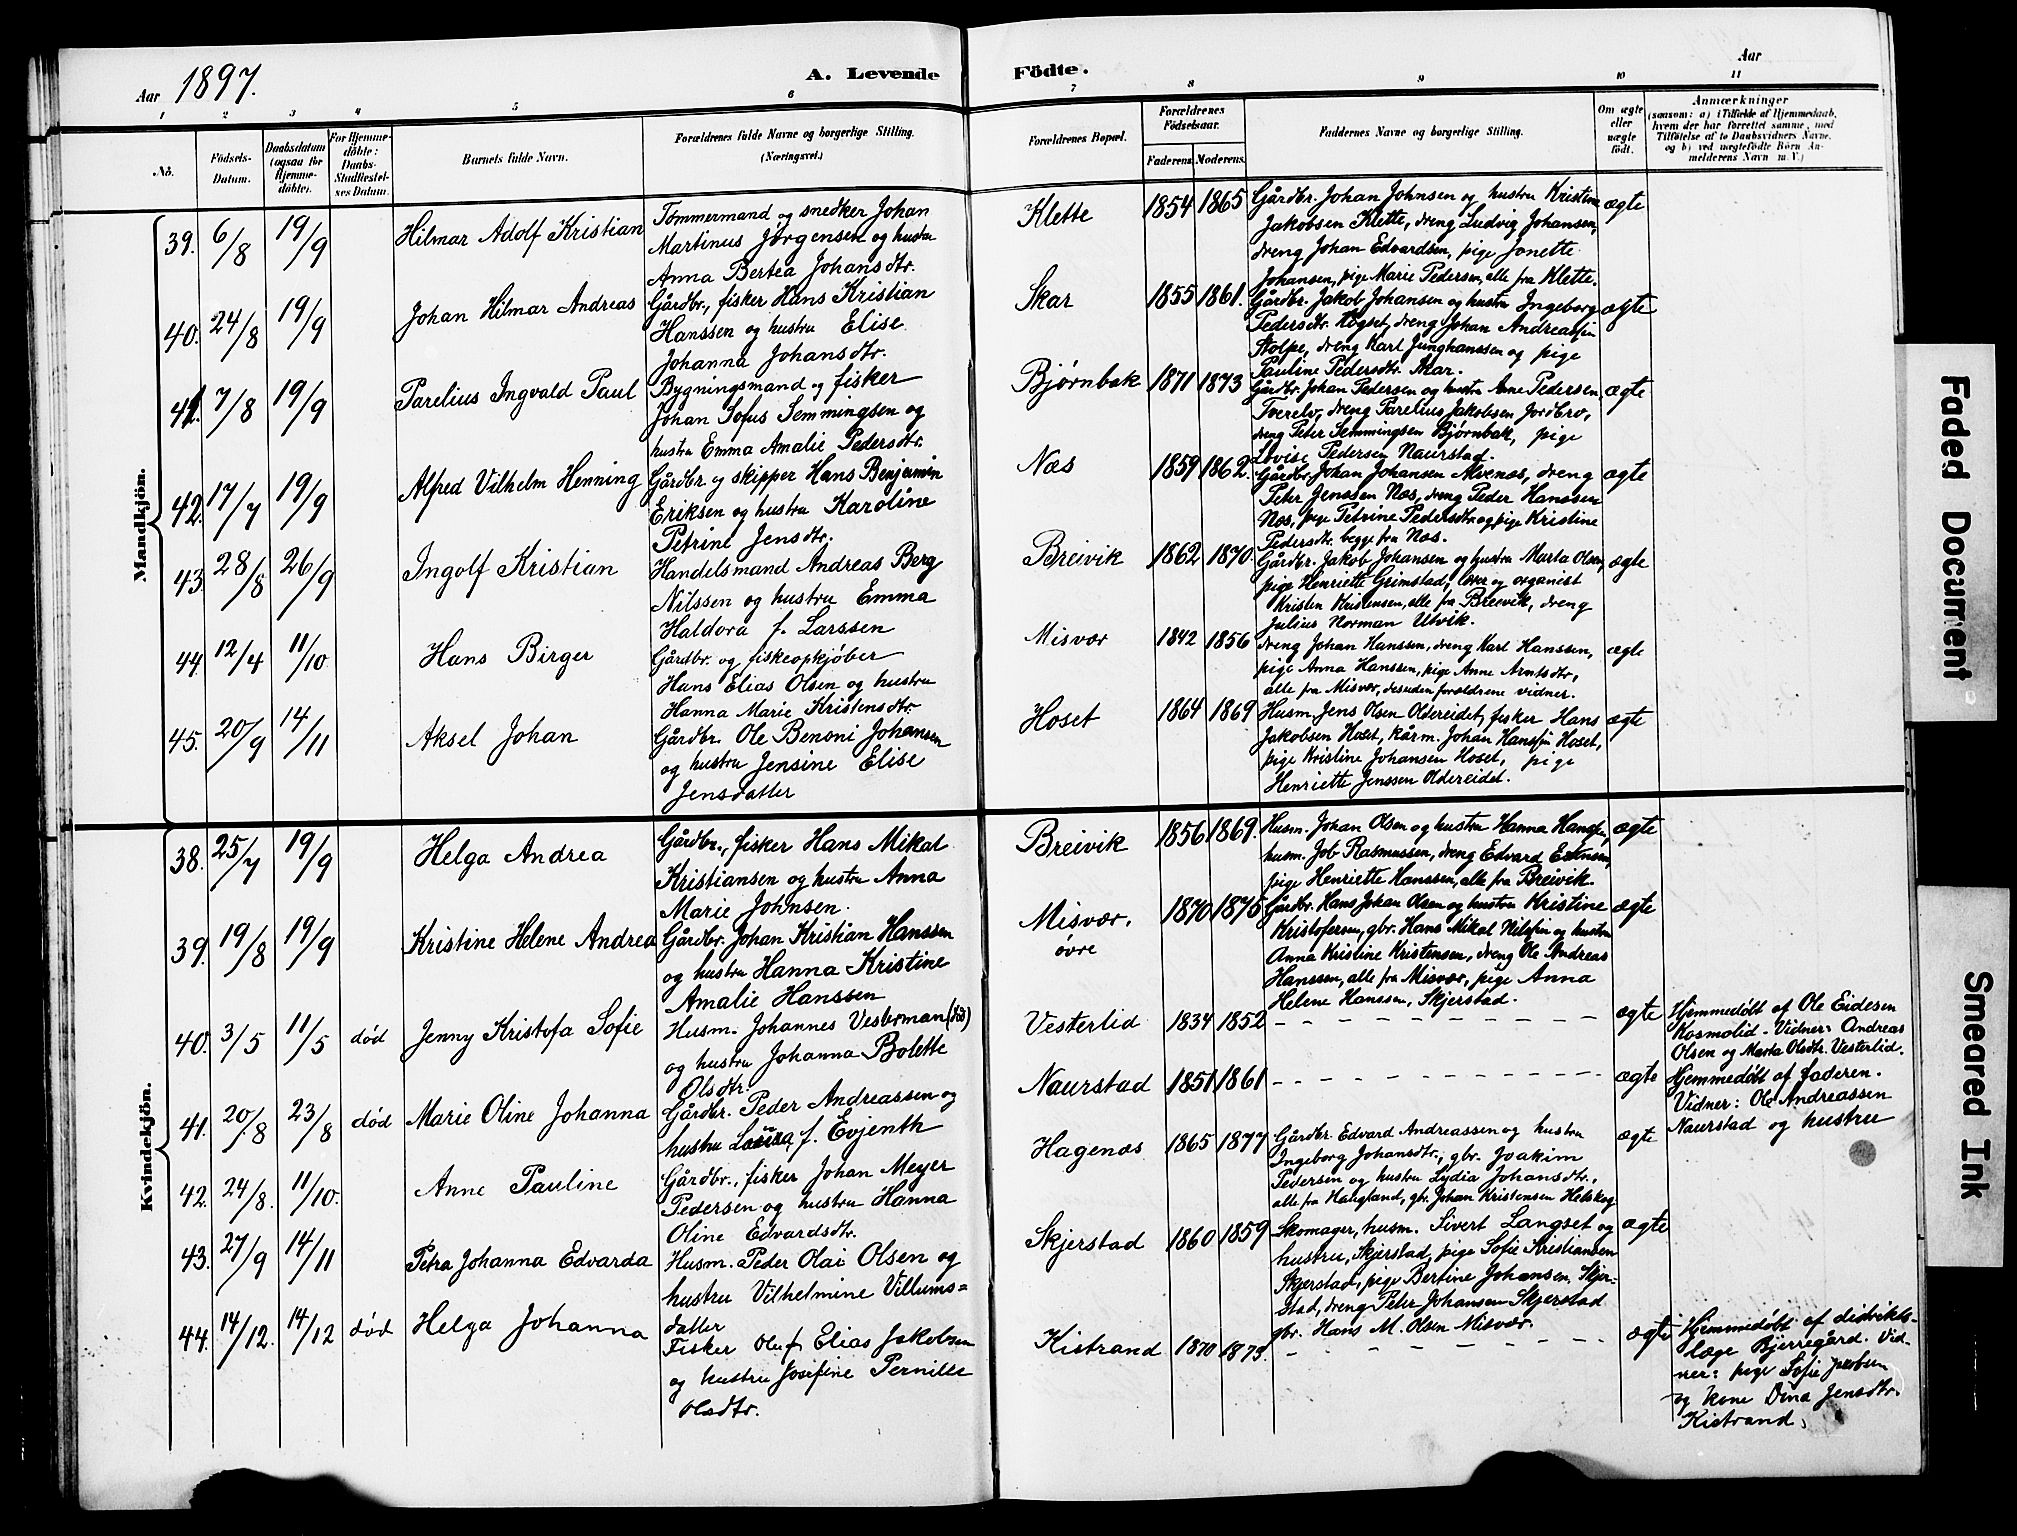 Aar 1897.
A. Levende Födte.
Aar
1 2 3 4 5 6 7 8 9 10 11
No.
Födsels-
Datum.
Daabsdatum
(ogsaa for
Hjemme-
döbte).
For Hjemme-
döbte:
Daabs-
Stadfæstel-
ses Datum.
Barnets fulde Navn.
Forældrenes fulde Navne og borgerlige Stilling.
(Næringsvei.)
Forældrenes Bopæl.
Forældrenes
Födselsaar.
Faderens. Moderens.
Faddernes Navne og borgerlige Stilling.
Om ægte
eller
uægte
født.
Anmærkninger
(saasom: a) i Tilfælde af Hjemmedaab,
hvem der har forrettet samme, med
Tilföielse af to Daabsvidners Navne,
og b) ved uægtefödte Börn An-
melderens Navn m. V.)
Mandkjön.
39. 6/8 19/9 Hilmar Adolf Kristian
Tömmermand og snedker Johan
Martinus Jørgensen og hustru
Anna Bertea Johansdtr.
Klette 1854 1865
Gårdbr. Johan Johnsen og hustru Kristine
Jakobsen Klette, dreng Ludvig Johansen,
dreng Johan Edvardsen, pige Jonette
Johansen, pige Marie Pedersen, alle fra Klette.
ægte
40. 24/8 19/9 Johan Hilmar Andreas
Gårdbr., fisker Hans Kristian
Hanssen og hustru Elise
Johanna Johansdtr.
Skar 1855 1861.
Gårdbr. Jakob Johansen og hustru Ingeborg
Pedersdtr. Kogset, dreng Johan Andreassen
Stolpe, dreng Karl Junghanssen og pige
Pauline Pedersdtr. Skar.
ægte
41. 7/8 19/9 Parelius Ingvald Paul
Bygningsmand og fisker
Johan Sofus Semmingsen og
hustru Emma Amalie Pedersdtr.
Bjørnbak 1871 1873
Gårdbr. Johan Pedersen og hustru Anne Pedersen,
Tverelv, dreng Parelius Jakobsen Jordbro,
dreng Peter Semmingsen Bjørnbak, pige
Lovise Pedersen Naurstad.
ægte
42. 17/7 19/9 Alfred Vilhelm Henning
Gårdbr. og skipper Hans Benjamin
Eriksen og hustru Karoline
Petrine Jensdtr.
Næs 1859 1862.
Gårdbr. Johan Johansen Alvenæs, dreng
Peter Jenssen Næs, dreng Peder Hanssen
Næs, pige Petrine Pedersdtr og pige Kristine
Pedersdtr. begge fra Næs.
ægte
43. 28/8 26/9 Ingolf Kristian
Handelsmand Andreas Berg
Nilssen og hustru Emma
Haldora f. Larssen
Breivik 1862 1870
Gårdbr. Jakob Johansen og hustru Marta Olsen,
pige Henriette Grimstad, lærer og organist
Kristen Kristensen, alle fra Breivik, dreng
Julius Norman Ulvik.
ægte
44. 12/4 11/10 Hans Birger
Gårdbr. og fiskeopkjøber
Hans Elias Olsen og hustru
Hanna Marie Kristensdtr.
Misvær 1842 1856
dreng Johan Hanssen, dreng Karl Hanssen,
pige Anna Hanssen, pige Anne Arntsdtr,
alle fra Misvær, desuden forældrene vidner.
ægte
45. 20/9 14/11 Aksel Johan
Gårdbr. Ole Benoni Johansen
og hustru Jensine Elise
Jensdatter
Hoset 1864 1869
Husm. Jens Olsen Oldereidet, fisker Hans
Jakobsen Hoset, kårm. Johan Hanssen Hoset,
pige Kristine Johansen Hoset, pige
Henriette Jenssen Oldereidet.
ægte
Kvindekjön.
38. 25/7 19/9 Helga Andrea
Gårdbr., fisker Hans Mikal
Kristiansen og hustru Anna
Marie Johnsen.
Breivik 1856 1869.
Husm. Johan Olsen og hustru Hanna Hanssen,
husm. Job Rasmussen, dreng Edvard
pige Henriette Hanssen, alle fra Breivik.
ægte
39. 19/8 19/9 Kristine Helene Andrea
Gårdbr. Johan Kristian Hanssen
og hustru Hanna Kristine
Amalie Hanssen
Misvær,
övre
1870 1875
Gårdbr. Hans Johan Olsen og hustru Kristine
Kristofersen, gbr. Hans Mikal Nilssen og hustru
Anna Kristine Kristensen, dreng Ole Andreas
Hanssen, alle fra Misvær, pige Anna
Helene Hanssen, Skjerstad.
ægte
40. 3/5 11/5 død Jenny Kristofa Sofie
Husm. Johannes Vesterman (död)
og hustru Johanna Bolette
Olsdtr.
Vesterlid 1834 1852
ægte
Hjemmedøbt af Ole Eidesen
Kosmolid. Vidner: Andreas
Olsen og Marta Olsdtr. Vesterlid.
41. 20/8 23/8 død Marie Oline Johanna
Gårdbr. Peder Andreassen og
hustru Laura f. Evjenth
Naurstad 1851 1861
ægte
Hjemmedøbt af faderen.
Vidner: Ole Andreassen
Naurstad og hustru
42. 24/8. 11/10. Anne Pauline
Gårdbr., fisker Johan Meyer
Pedersen og hustru Hanna
Oline Edvardsdtr.
Hagenæs 1865 1877
Gårdbr. Edvard Andreassen og hustru
Ingeborg Johansdtr., gbr. Joakim
Pedersen og hustru Lydia Johansdtr.,
alle fra Haugland, gbr. Johan Kristensen Helskog
ægte
43. 27/9 14/11 Petra Johanna Edvarda
Husm. Peder Olai Olsen og
hustru Vilhelmine Villums=
datter
Skjerstad 1860 1859
Skomager, husm. Sivert Langset og
hustru, Skjerstad, pige Sofie Kristiansen
Skjerstad, pige Bertine Johansen, Skjer-
stad, dreng Peter Johansen Skjerstad
gbr. Hans M. Olsen Misvær.
ægte
44. 14/12. 14/12 død Helga Johanna
Fisker Oluf Elias Jakobsen
og hustru Josefine Pernille
Olsdtr.
Kistrand 1870 1873.
ægte
Hjemmedøbt af distrikts-
læge Bjerregård. Vid-
ner: pige Sofie
og kone Dina Jensdtr.
Kistrand.
Faded Document
Smeared Ink